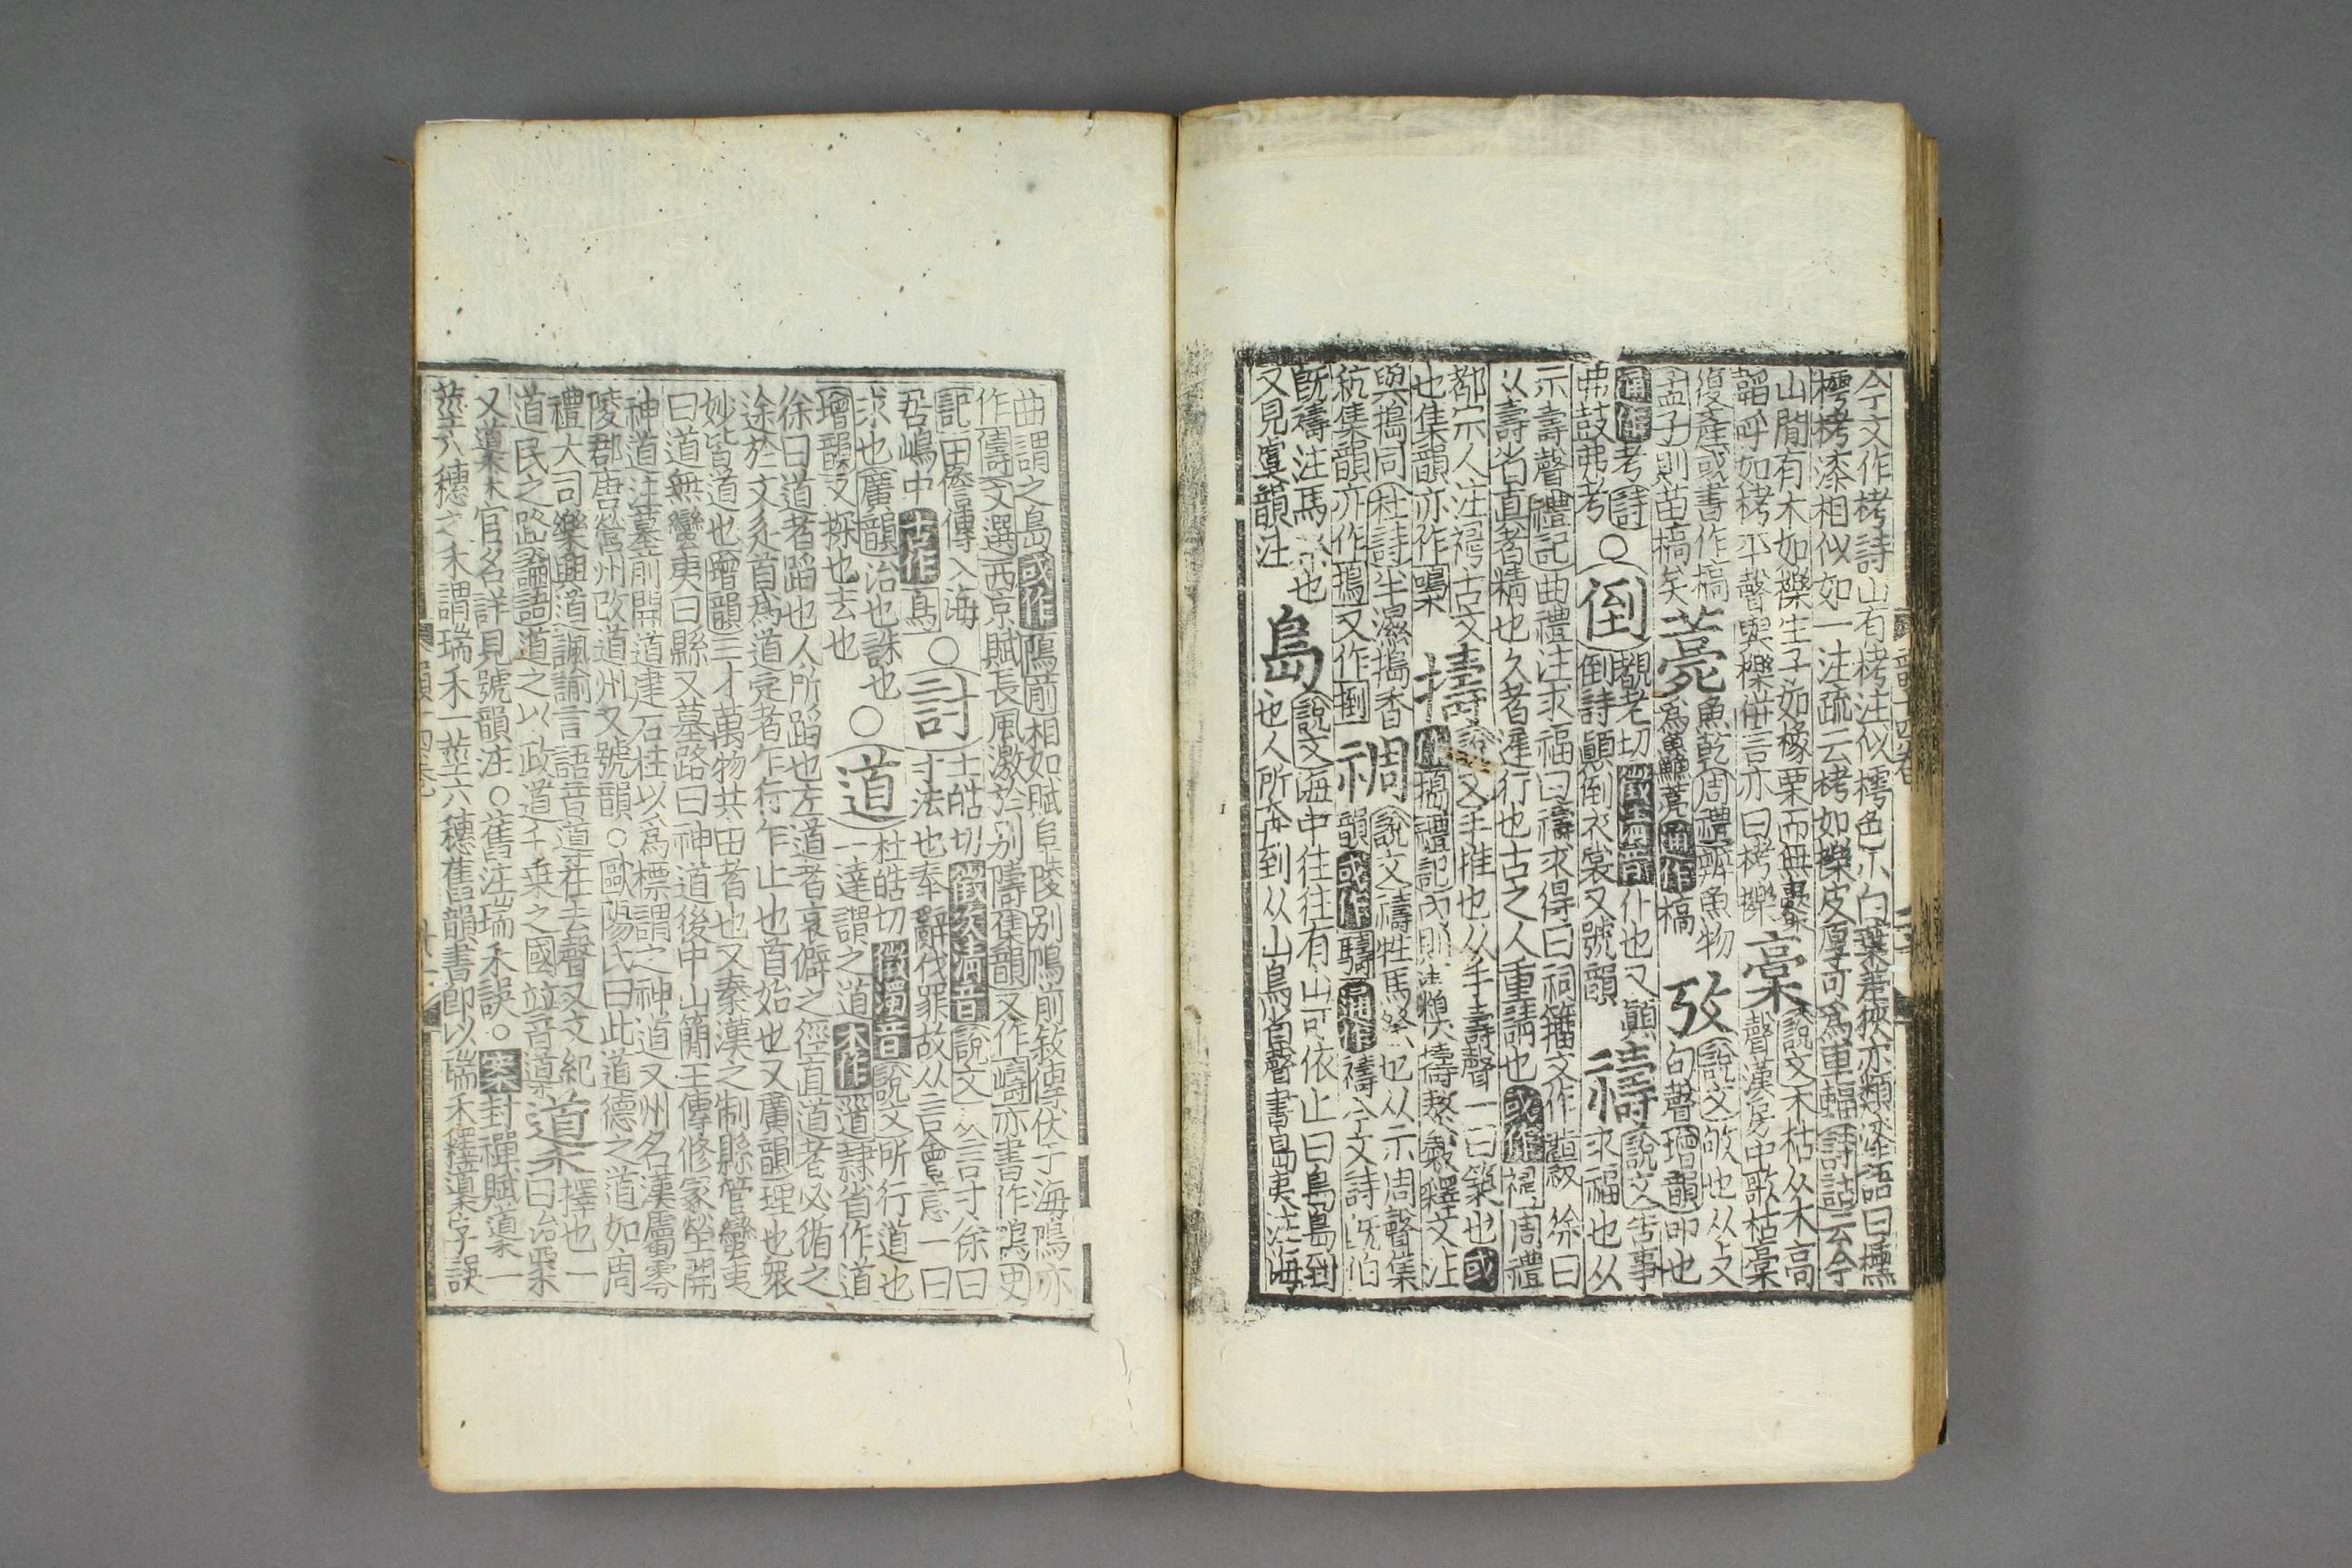 今文作栲詩山有栲注似樗色小白葉差狹亦類漆語曰櫄
樗栲漆相似如一注疏云栲如櫟皮厚可為車輻詩詁云今
山間有木如櫟生子如橡栗而無
韜呼如栲平聲與櫟併言亦曰栲櫟
槀說文木枯从木高
聲漢房中歌枯槀
復產或書作槁
孟子則苗槁矣
薧魚乾周禮辨魚物
為鱻薧通作槁
攷說文敂也从攴
句聲增韻叩也
通作考詩
弗鼓弗考○
倒覩老切徵全清音仆也又顚
倒詩顚倒衣裳又號韻
禱說文告事
求福也从
示壽聲禮記曲禮注求福曰禱求得曰祠籀文作 徐曰
以壽省真者精也久者遲行也古之人重請也或作禂周禮
都宗人注禂古文
也集韻亦作
擣說文手推也从手壽聲一曰築也或
作搗禮記內則注糗擣熬穀釋文注
與搗同杜詩半濕搗香
秔集韻亦作 又作
禂說文禱牲馬祭也从示周聲集
韻或作 通作禱今文詩旣伯
旣禱注馬祭也
又見虞韻注
島說文海中往往有山可依止曰島島到
也人所奔到从山鳥省聲書島夷注海
曲謂之島或作隝前相如賦阜陵別隝前敘傳伏于海隝亦
作 文選西京賦長風激於別隯集韻又作 亦書作 史
記田儋傳入海
居嶋中古作 ○
討土皓切徵次清音說文从言寸徐曰
寸法也奉辭伐罪故从言會意一曰
求也廣韻治也誅也
增韻又探也去也○
道杜皓切徵濁音說文所行道也
一達謂之道本作 隷省作道
徐曰道者蹈也人所蹈也左道者哀僻之徑直道者必循之
途於文辵首為道定者乍行乍止也首始也又廣韻理也衆
妙皆道也增韻三才萬物共由者也又秦漢之制縣管蠻夷
曰道無蠻夷曰縣又墓路曰神道後中山簡王傳修冢塋開
神道注墓前開道建石柱以為標謂之神道又州名漢屬零
陵郡唐營州改道州又號韻○歐陽氏曰此道德之道如周
禮大司樂興道諷諭言語音道在去聲又文紀
道民之路論語道之以政道千乘之國竝音導
䆃擇也一
曰治粟
又䆃木官名詳見號韻注○舊注瑞禾誤○案封禪賦䆃一
莖六穗之禾謂瑞禾一莖六穗舊韻書卽以瑞禾釋䆃字誤